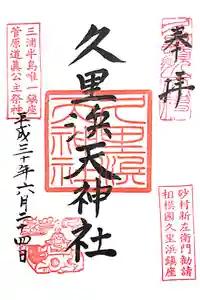 奉拝
砂村新左衛門勧請
相模國久里浜鎮座
久里浜天神社
三浦半島唯一鎮座
菅原道真公主祭神
平成三十年六月二十四日